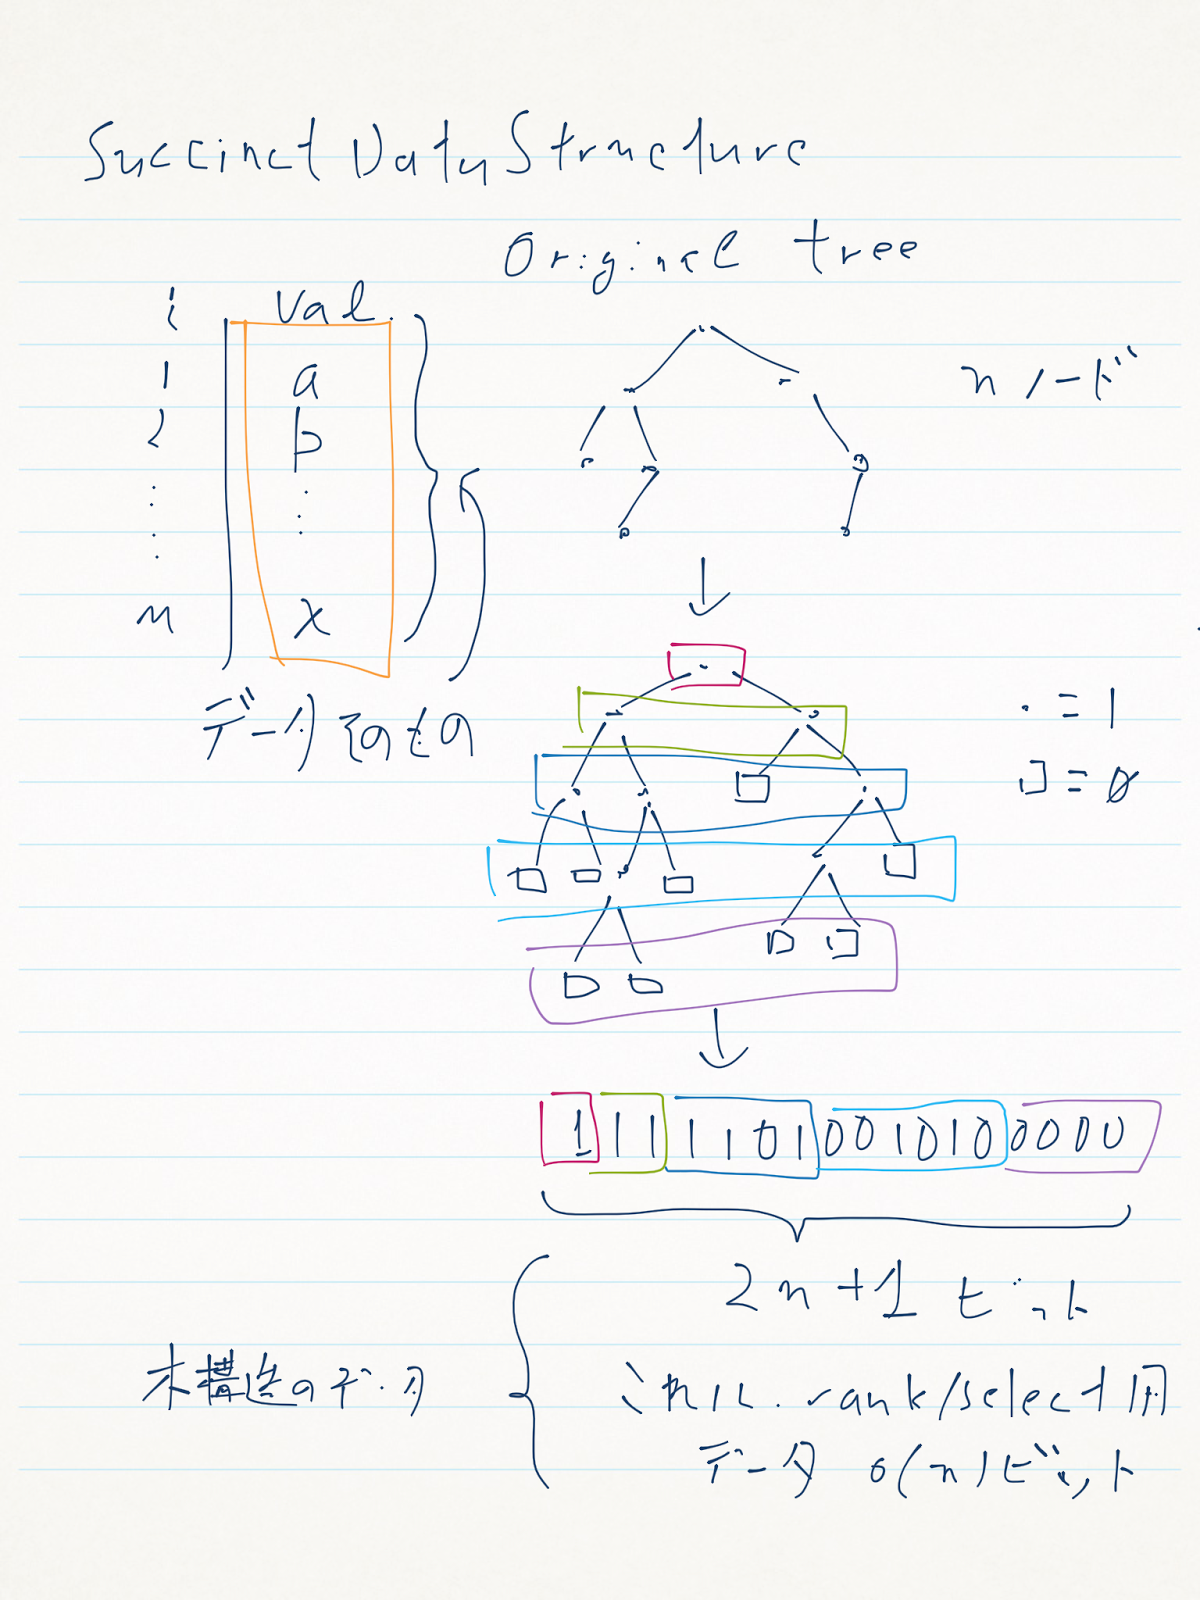 Succinct Data Structure
Original tree
i val.
1 a
2 b
⋮ ⋮
n x
データそのもの
n ノード
・ = 1
□ = 0
1 11 1101 001010 0000
2n+1 ビット
木構造のデータ
これに. rank/select用
データ o(n)ビット